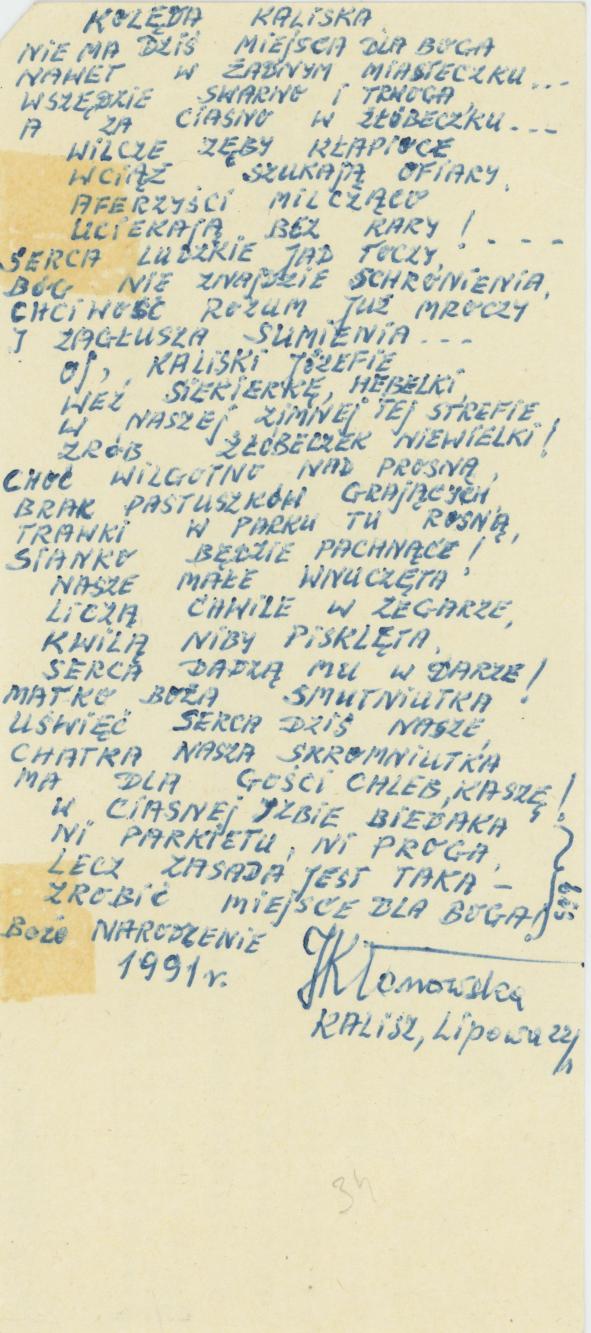 KOLĘDA KALISKA
NIE MA DZIŚ MIEJSCA DLA BOGA
NAWET W ŻADNYM MIASTECZKU...
WSZĘDZIE SWARNO I TRWOGA,
A ZA CIASNO W ŻŁÓBECZKU...
WILCZE ZĘBY KŁAPIĄCE
WCIĄŻ SZUKAJĄ OFIARY,
AFERZYŚCI MILCZĄCO
UCIEKAJĄ BEZ KARY!....
SERCA LUDZKIE JAD TOCZY,
BÓG NIE ZNAJDZIE SCHRONIENIA,
CHCIWOŚĆ ROZUM JUŻ MROCZY
I ZAGŁUSZA SUMIENIA...
OJ, KALISKI JÓZEFIE
WEŹ SIEKIERKĘ, HEBELKI,
W NASZEJ ZIMNEJ TEJ STREFIE
ZRÓB ŻŁÓBECZEK NIEWIELKI!
CHOĆ WILGOTNO NAD PROSNĄ,
BRAK PASTUSZKÓW GRAJĄCYCH,
TRAWKI W PARKU TU ROSNĄ,
SIANKO BĘDZIE PACHNĄCE!
NASZE MAŁE WNUCZĘTA
LICZĄ CHWILE W ZEGARZE,
KWILĄ NIBY PISKLĘTA,
SERCA DADZĄ MU W DARZE!
MATKO BOŻA SMUTNIUTKA!
UŚWIĘĆ SERCA DZIŚ NASZE,
CHATKA NASZA SKROMNIUTKA
MA DLA GOŚCI CHLEB, KASZĘ!
W CIASNEJ IZBIE BIEDAKA
NI PARKIETU, NI PROGA,
LECZ ZASADA JEST TAKA –
ZROBIĆ MIEJSCE DLA BOGA!
bis
Boże NARODZENIE
1991 r.
JKlonowska
KALISZ, Lipowa 22/
34